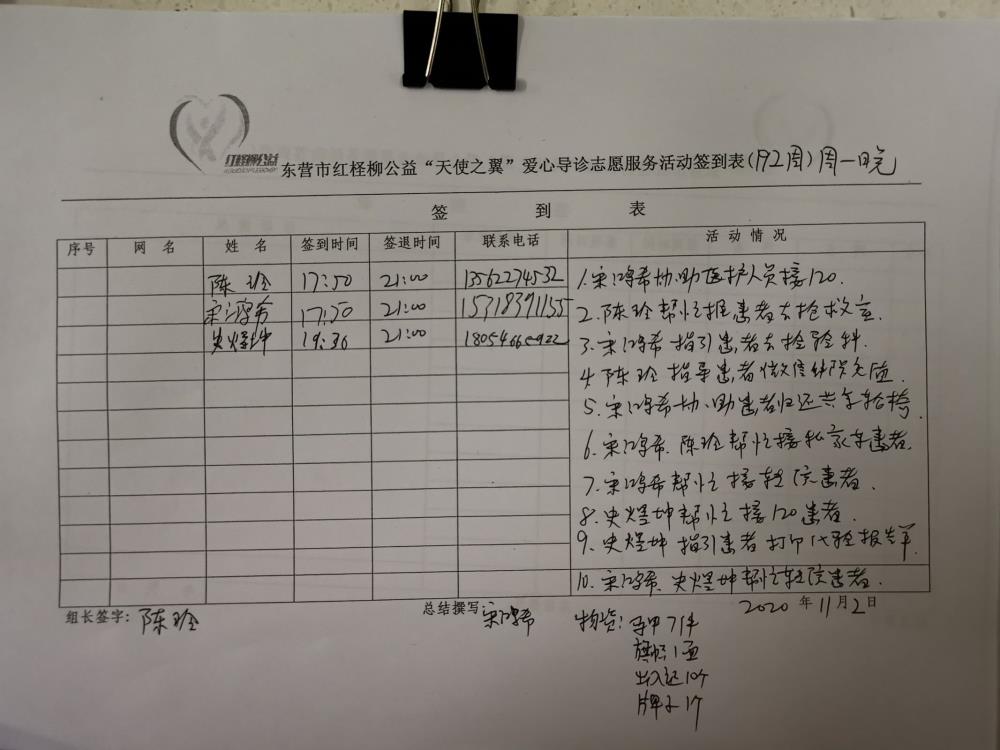 红柽柳公益
东营市红柽柳公益“天使之翼”爱心导诊志愿服务活动签到表(192周)周一晚
签 到 表
序号 网 名 姓 名 签到时间 签退时间 联系电话 活 动 情 况
陈玲 17:50 21:00 13562274532
宋鸿希 17:50 21:00 15318391155
史煜坤 19:36 21:00
1.宋鸿希协助医护人员接120.
2.陈玲帮忙推患者去抢救室.
3.宋鸿希指引患者去检验科.
4.陈玲指导患者微信
5.宋鸿希协助患者归还共享轮椅.
6.宋鸿希.陈玲帮忙接私家车患者.
7.宋鸿希帮忙接转院患者.
8.史煜坤帮忙接120患者.
9.史煜坤指引患者打印化验报告单.
10.宋鸿希.史煜坤帮忙转院患者.
组长签字:陈玲 总结撰写:宋鸿希 2020年11月2日
物资:马甲71件
旗帜1面
出入证10个
牌子1个